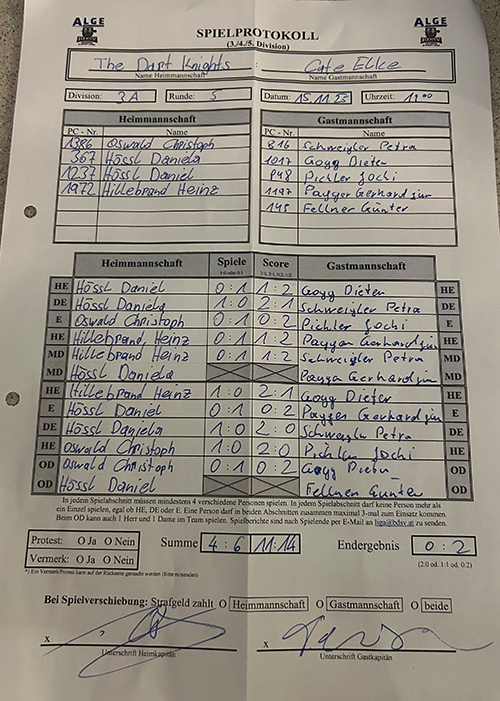 ALGE ALGE
SPIELPROTOKOLL
(3./4./5. Division)
The Dart Knights : Cafe Elke
Name Heimmannschaft Name Gastmannschaft
Division: 3A Runde: 5 Datum: 15.11.25 Uhrzeit: 19°°
Heimmannschaft Gastmannschaft
PC - Nr. Name PC - Nr. Name
1386 Oswald Christoph 816 Schweigler Petra
367 Hössl Daniela 1017 Gogg Dieter
1237 Hössl Daniel 948 Pichler Jochi
1972 Hillebrand Heinz 1197 Payger Gerhard jun
145 Fellner Günter
Heimmannschaft Spiele Score Gastmannschaft
1:0 oder 0:1 2:0, 2:1, 0:2, 1:2
HE Hössl Daniel 0:1 1:2 Gogg Dieter HE
DE Hössl Daniela 1:0 2:1 Schweigler Petra DE
E Oswald Christoph 0:1 0:2 Pichler Jochi E
HE Hillebrand, Heinz 0:1 1:2 Payger Gerhard jun HE
MD Hillebrand Heinz 0:1 1:2 Schweigler Petra MD
MD Hössl Daniela Payga Gerhard jun MD
HE Hillebrand Heinz 1:0 2:1 Gogg Dieter HE
E Hössl Daniel 0:1 0:2 Payger Gerhard jun E
DE Hössl Daniela 1:0 2:0 Schweigler Petra DE
HE Oswald Christoph 1:0 2:0 Pichler Jochi HE
OD Oswald Christoph 0:1 0:2 Gogg Dieter OD
OD Hössl Daniel Fellner Günter OD
In jedem Spielabschnitt müssen mindestens 4 verschiedene Personen spielen. In jedem Spielabschnitt darf keine Person mehr als
ein Einzel spielen, egal ob HE, DE oder E. Eine Person darf in beiden Abschnitten zusammen maximal 3-mal zum Einsatz kommen.
Beim OD kann auch 1 Herr und 1 Dame im Team spielen. Spielberichte sind nach Spielende per E-Mail an liga@bdsv.at zu senden.
Protest: O Ja O Nein Summe 4:6 11:14 Endergebnis 0:2
Vermerk: O Ja O Nein (2:0 od. 1:1 od. 0:2)
*) Ein Vermerk/Protest kann auf der Rückseite gemacht werden (bitte ankreuzen)
Bei Spielverschiebung: Strafgeld zahlt O Heimmannschaft O Gastmannschaft O beide
x x
Unterschrift Heimkapitän Unterschrift Gastkapitän